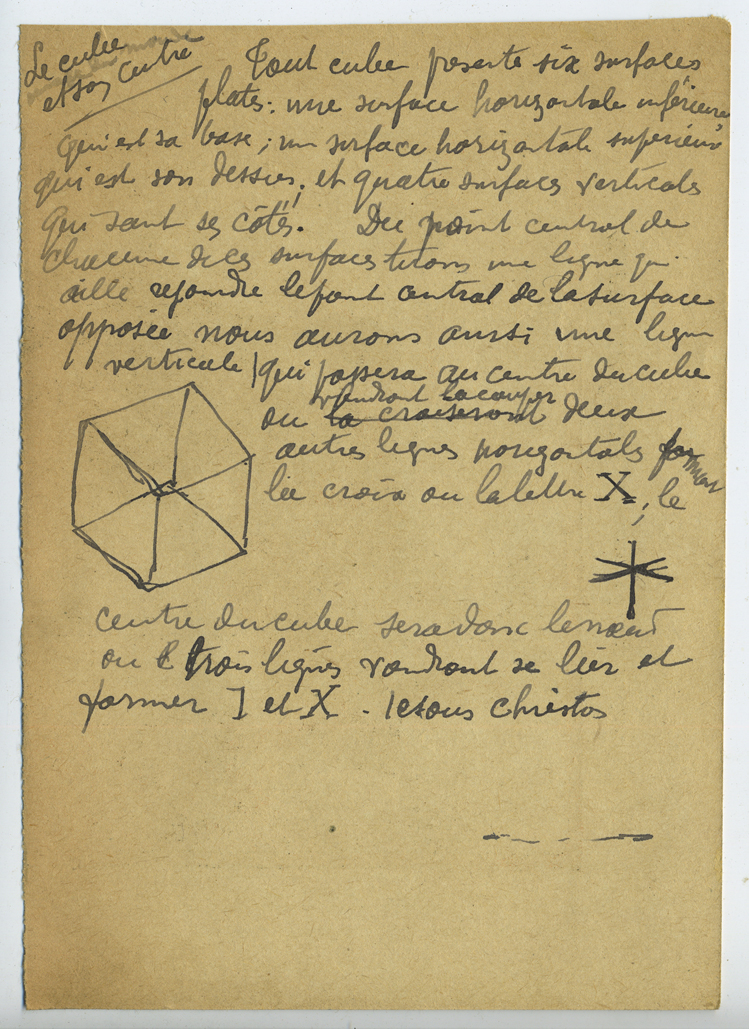 Le cube
et son centre
Tout cube présente six surfaces
plates: une surface horizontale inférieure
qui est sa base; un surface horizontale supérieure
qui est son dessus; et quatre surfaces verticales
qui sont ses côtés. Du point central de
chacune de ces surfaces tirons une ligne qui
aille rejoindre le point central de la surface
opposée nous aurons aussi une ligne
verticale qui passera au centre du cube
viendront la couper
ou la croiseront deux
autres lignes horizontales formant
la croix ou la lettre X; le
centre du cube sera donc le nœud
ou les trois lignes viendront se lier et
former I et X - Iesous Christos